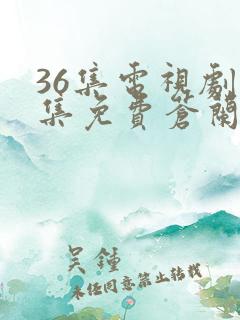 36集電視劇
集免費答閑
吴鍾
未任同意禁止转载